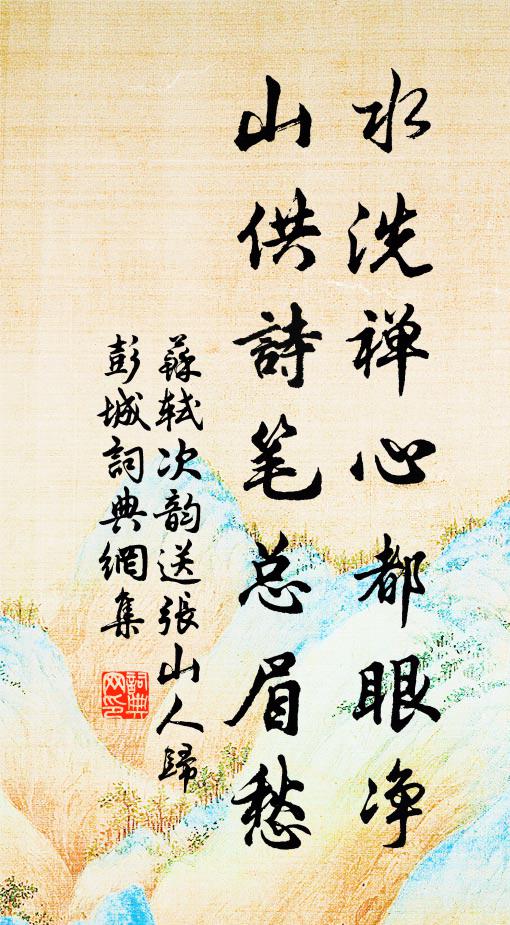 水洗禅心都眼净
山供詩笔总眉愁
蘇轼次韵送張山人歸
彭城詞典網集
詞典
网印